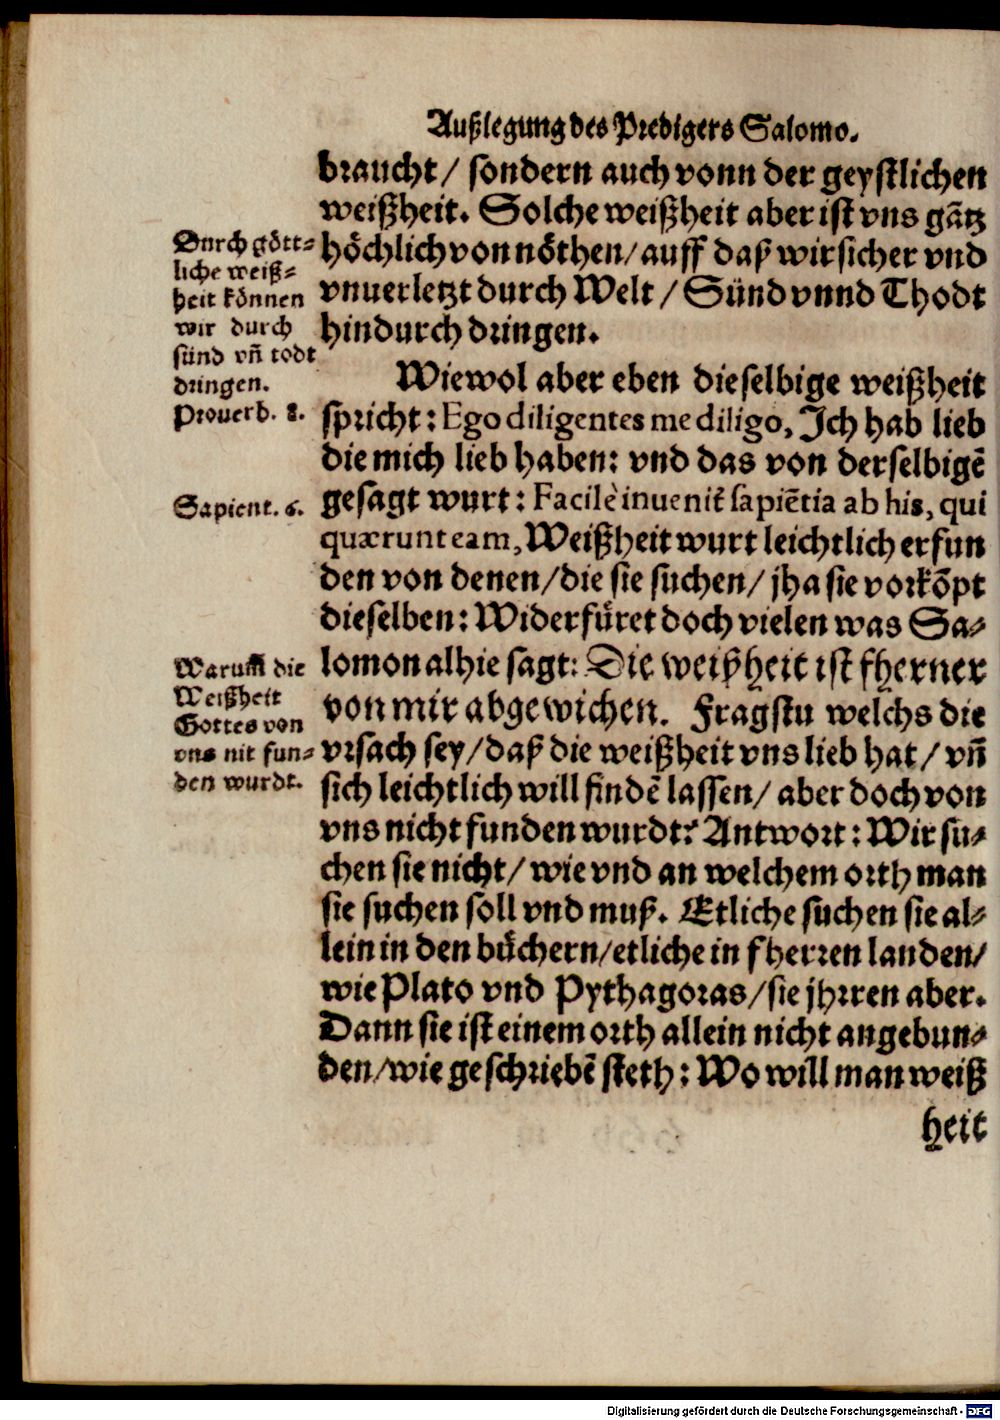 Außlegung des Predigers Salomo.
braucht / sondern auch vonn der geystlichen
weißheit. Solche weißheit aber ist vns gãtz
höchlich von nöthen / auff daß wir sicher vnd
vnuerletzt durch Welt / Sünd vnnd Thodt
hindurch dringen.
Durch gött-
liche weiß-
heit können
wir durch
sünd vñ todt
dringen.
Wiewol aber eben dieselbige weißheit
Prouerb. 8.
spricht: Ego diligentes me diligo, Ich hab lieb
die mich lieb haben: vnd das von derselbigẽ
Sapient. 6.
gesagt wurt: Facilè inuenit̃ sapiẽtia ab his, qui
quærunt eam, Weißheit wurt leichtlich erfun
den von denen / die sie suchen / jha sie vorkõpt
dieselben: Widerfüret doch vielen was Sa-
lomon alhie sagt: Die weißheit ist fherner
von mir abgewichen. Fragstu welchs die
Warum̃ die
Weißheit
Gottes von
vns nit fun-
den wurdt.
vrsach sey / daß die weißheit vns lieb hat / vñ
sich leichtlich will findẽ lassen / aber doch von
vns nicht funden wurdt? Antwort: Wir su-
chen sie nicht / wie vnd an welchem orth man
sie suchen soll vnd muß. Etliche suchen sie al-
lein in den büchern / etliche in fherren landen /
wie Plato vnd Pythagoras / sie jhrren aber.
Dann sie ist einem orth allein nicht angebun-
den / wie geschriebẽ steth: Wo will man weiß
heit
Digitalisierung gefördert durch die Deutsche Forschungsgemeinschaft - DFG